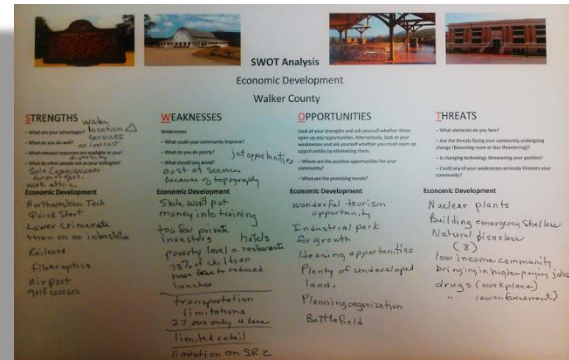 SWOT Analysis
Economic Development
Walker County
STRENGTHS
water
location △
services
at low cost
- What are your advantages?
- What do you do well?
- What relevant resources are available to you?
diversity
- What do other people see as your strengths?
Sole Commissioner
work ethic
Economic Development
Northwestern Tech
Quick Start
Lower crime rate
than on an interstate
Railroad
Fiber optics
airport
golf courses
WEAKNESSES
Weaknesses
- What could your community improve?
- What do you do poorly?
job opportunities
- What should you avoid?
cost of services
because of topography
Economic Development
State won't put
money into training
too few private
investors hotels
restaurants
poverty level
73% of children
free to reduced
lunches
transportation
limitations
27 our only 4 lane
limited retail
limitation on SR 2
OPPORTUNITIES
Look at your strengths and ask yourself whether these
open up any opportunities. Alternatively, look at your
weaknesses and ask yourself whether you could open up
opportunities by eliminating them.
- Where are the positive opportunities for your
community?
- What are the promising trends?
Economic Development
wonderful tourism
opportunity
Industrial park
for growth
Housing opportunities
Plenty of undeveloped
land.
Planning organization
Battlefield
THREATS
- What obstacles do you face?
- Are the threats facing your community undergoing
change (Becoming more or less threatening)?
- Is changing technology threatening your position?
- Could any of your weaknesses seriously threaten your
community?
Economic Development
Nuclear plants
Building emergency shelters
Natural disasters
(8)
low income community
bringing in higher paying jobs
drugs (workplace)
" (law enforcement)